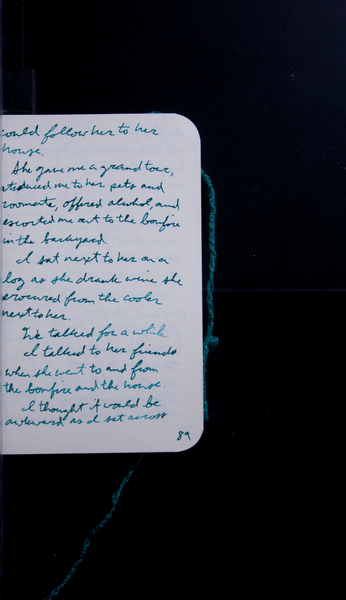 would follow her to her
house.
She gave me a grand tour,
introduced me to her pets and
roomate, offered alcohol, and
escorted me out to the bonfire
in the backyard.
I sat next to her on a
log as she drank wine she
procured from the cooler
next to her.
We talked for a while
I talked to her friends
when she went to and from
the bonfire and the house.
I thought it would be
awkward as I sat across
89